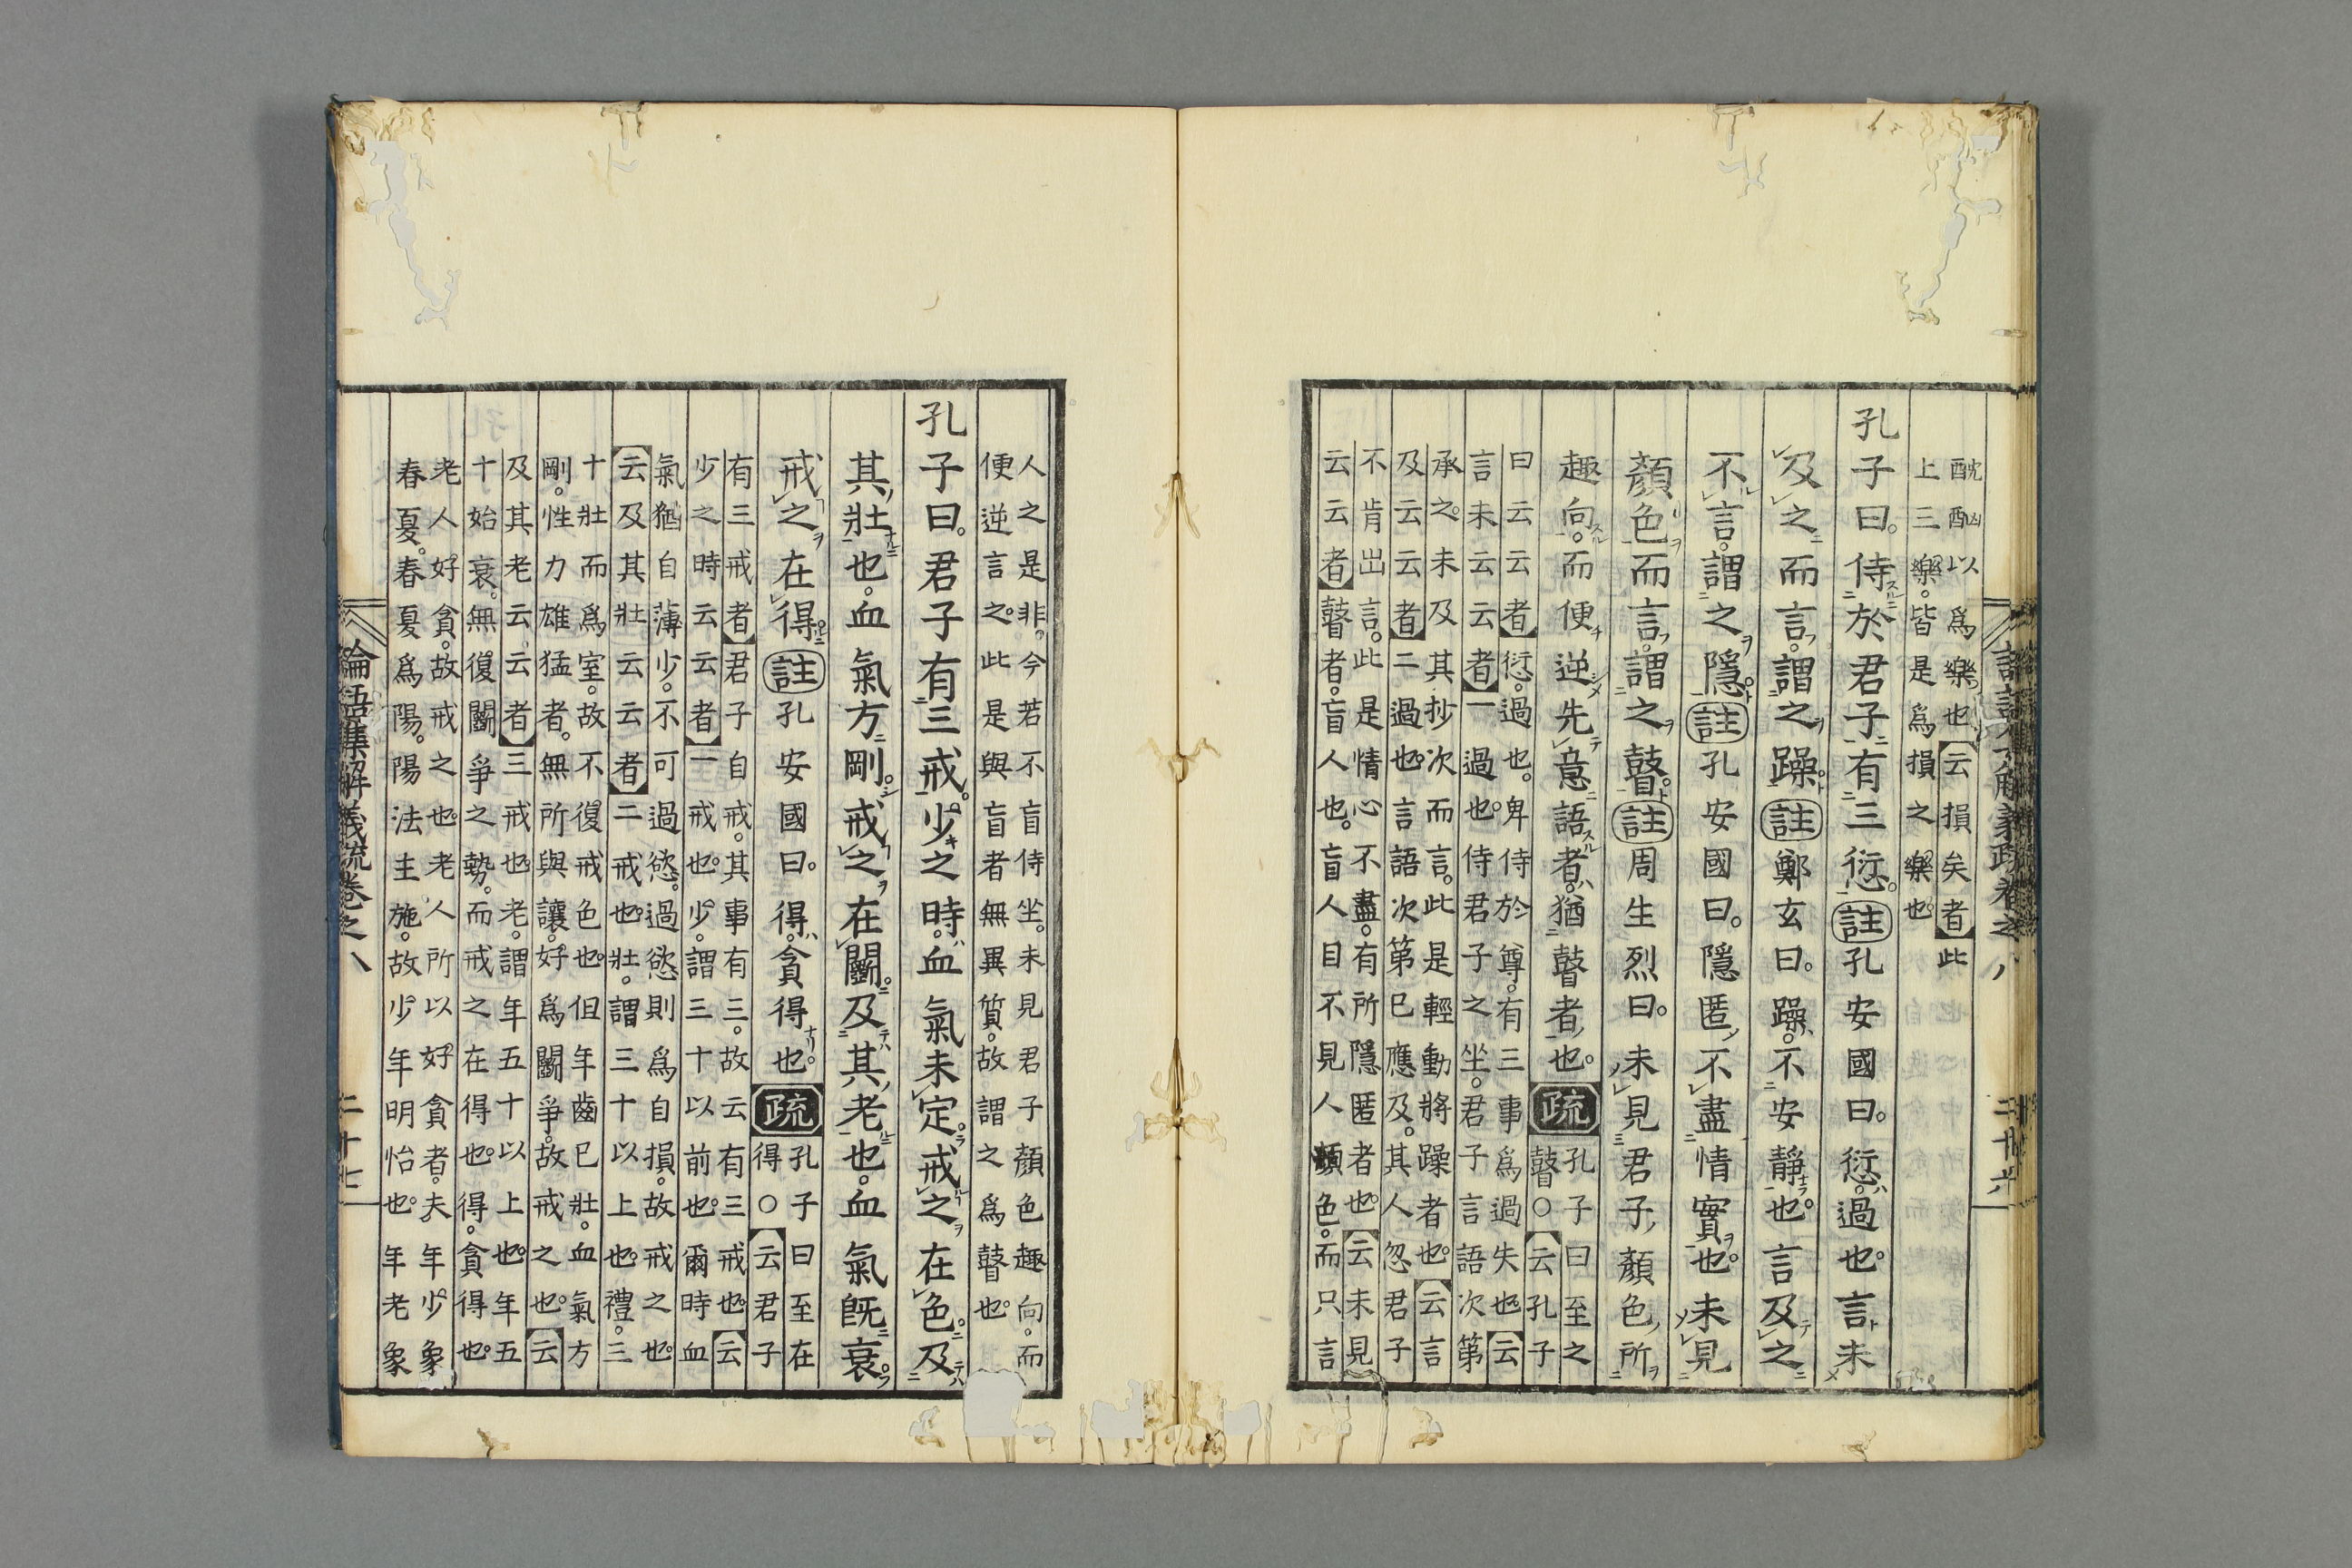 酖酗以爲樂也云損矣者此
上三樂。皆是爲損之樂也。
孔子曰。侍於君子有三愆。註孔安國曰。愆。過也。言未
及之而言。謂之躁。註鄭玄曰。躁。不安靜也。言及之
不言。謂之隱。註孔安國曰。隱匿不盡情實也。未見
顏色而言。謂之瞽。註周生烈曰。未見君子顏色所
趣向。而便逆先意語者。猶瞽者也。疏
孔子曰至之
瞽○云孔子
曰云云者愆。過也。卑侍於尊。有三事爲過失也云
言未云云者一過也。侍君子之坐。君子言語次第
承之。未及其抄次而言。此是輕動將躁者也。云言
及云云者二過也。言語次第已應及。其人忽君子
不肯出言。此是情心不盡。有所隱匿者也。云未見
云云者瞽者。盲人也。盲人目不見人顏色。而只言
人之是非。今若不盲侍坐。未見君子顏色趣向。而
便逆言之。此是與盲者無異質。故謂之爲瞽也。
孔子曰。君子有三戒。少之時。血氣未定。戒之在色。及
其壯也。血氣方剛。戒之在鬭。及其老也。血氣既衰。
戒之在得。註孔安國曰。得。貪得也。疏
孔子曰至在
得○云君子
有三戒者君子自戒。其事有三。故云有三戒也。云
少之時云云者一戒也。少。謂三十以前也。爾時血
氣猶自薄少。不可過慾。過慾則爲自損。故戒之也。
云及其壯云云者二戒也。壯。謂三十以上也。禮。三
十壯而爲室。故不復戒色也。但年齒已壯。血氣方
剛。性力雄猛者。無所與讓。好爲鬭爭。故戒之也。云
及其老云云者三戒也。老。謂年五十以上也。年五
十始衰。無復鬭爭之勢。而戒之在得也。得。貪得也。
老人好貪。故戒之也。老人所以好貪者。夫年少象
春夏。春夏爲陽。陽法主施。故少年明怡也。年老象
論語集解義疏卷之八
二十七